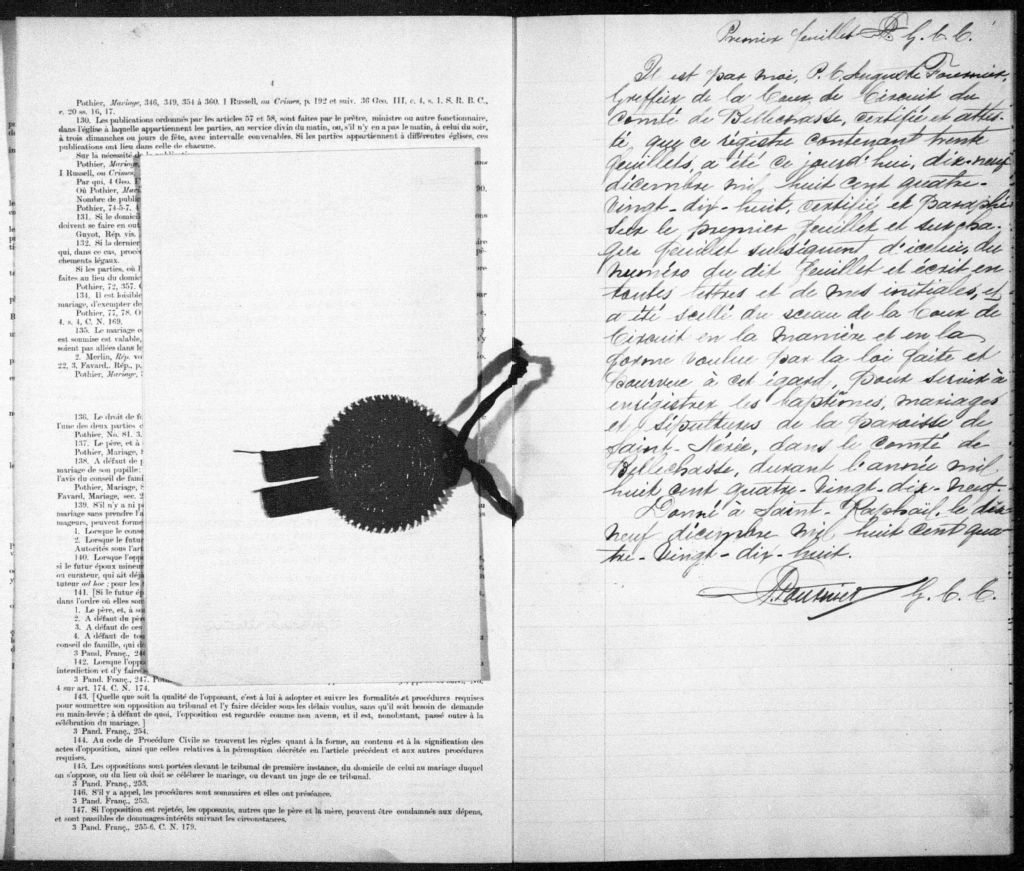 4
Pothier, Mariage, 346, 349, 354 à 360. 1 Russell, ou Crimes, p. 192 et suiv. 36 Geo. III, c. 4, s. 1. S. R. B. C.,
c. 20 ss. 16, 17.
130. Les publications ordonnées par les articles 57 et 58, sont faites par le prêtre, ministre ou autre fonctionnaire,
dans l'église à laquelle appartiennent les parties, au service divin du matin, ou, s'il n'y en a pas le matin, à celui du soir,
à trois dimanches ou jours de fête, avec intervalle convenables. Si les parties appartiennent à différentes églises, ces
publications ont lieu dans celle de chacune.
Sur la nécessité de la
Pothier, Mariag
1 Russell, ou Crimes,
Par qui, 4 Geo. I
Où Pothier, Mari
Nombre de public
Pothier, 74-5-7.
131. Si le domici
doivent se faire en out
Guyot, Rép. vis.
132. Si la dernier
qui, dans ce cas, procè
chements légaux.
Si les parties, où l
faites au lieu du domic
Pothier, 72, 357.
134. Il est loisible
mariage, d'exempter de
Pothier, 77, 78. O
4, s. 4, C. N. 169.
135. Le mariage c
est soumise est valable,
soient pas allées dans le
2. Merlin, Rép. vo
22, 3. Favard., Rép., p.
Pothier, Mariage,
136. Le droit de fo
l'une des deux parties c
Pothier, No. 81. 3.
137. Le père, et à
Pothier, Mariage,
138. A défaut de p
mariage de son pupille;
l'avis du conseil de fami
Pothier, Mariage, 8
Favard, Mariage, sec. 2
139. S'il n'y a ni p
mariage sans prendre l'a
mageurs, peuvent forme
1. Lorsque le conse
2. Lorsque le futur
Autorités sous l'art
140. Lorsque l'opp
si le futur époux mineur
ou curateur, qui ait déjà
tuteur ad hoc; pour les
141. [Si le futur ép
dans l'ordre où elles son
1. Le père, et, à so
2. A défaut du père
3. A défaut de ces
4. A défaut de tou
conseil de famille, qui d
3 Pand. Franç., 24
142. Lorsque l'oppo
interdiction et d'y faire
3 Pand. Franç., 247.
4 sur art. 174. C. N. 174.
143. [Quelque que soit la qualité de l'opposant, c'est à lui à adopter et suivre les formalités et procédures requises
pour soumettre son opposition au tribunal et l'y faire décider sous les délais voulus, sans qu'il soit besoin de demande
en main-levée; à défaut de quoi, l'opposition est regardée comme non avenu, et il est, nonobstant, passé outre à la
célébration du mariage.]
3 Pand. Franç., 254.
144. Au code de Procédure Civile se trouvent les règles quant à la forme, au contenu et à la signification des
actes d'opposition, ainsi que celles relatives à la péremption décrétée en l'article précédent et aux autres procédures
requises.
145. Les oppositions sont portées devant le tribunal de première instance, du domicile de celui au mariage duquel
on s'oppose, ou du lieu où doit se célébrer le mariage, ou devant un juge de ce tribunal.
3 Pand. Franç., 253.
146. S'il y a appel, les procédures sont sommaires et elles ont préséance.
3 Pand. Franç., 253.
147. Si l'opposition est rejetée, les opposants, autres que le père et la mère, peuvent être condamnés aux dépens,
et sont passibles de dommages-intérêts suivant les circonstances.
3 Pand. Franç., 255-6, C. N. 179.
Premier feuillet G. C. C.
Il est par moi, P. C. Auguste Fournier,
Greffier de la Cour de Circuit du
Comté de Bellechasse, certifié et attes-
té, que ce régistre contenant trente
feuillets, a été ce jourd'hui, dix-neuf
décembre mil huit cent quatre-
vingt-dix-huit, certifié et paraphé
sur le premier feuillet et sur cha-
que feuillet subséquent d'icelui, du
numéro du dit feuillet et écrit en
toutes lettres et de mes initiales, et
a été scellé du sceau de la Cour de
Circuit en la manière et en la
forme voulue par la loi faite et
pourvue à cet égard, pour servir à
enrégistrer les baptêmes, mariages
et sépultures de la paroisse de
Saint-Nérée, dans le comté de
Bellechasse, durant l'année mil
huit cent quatre-vingt-dix-neuf.
Donné à Saint-Raphaël, le dix-
neuf décembre mil huit cent qua
tre-vingt-dix-huit.
A. Fournier G. C. C.